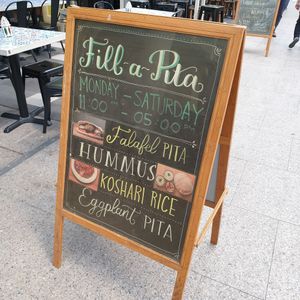 Fill-a-Pita
MONDAY - SATURDAY
11:00 - 05:00
Falafel PITA
HUMMUS
KOSHARI RICE
Eggplant PITA